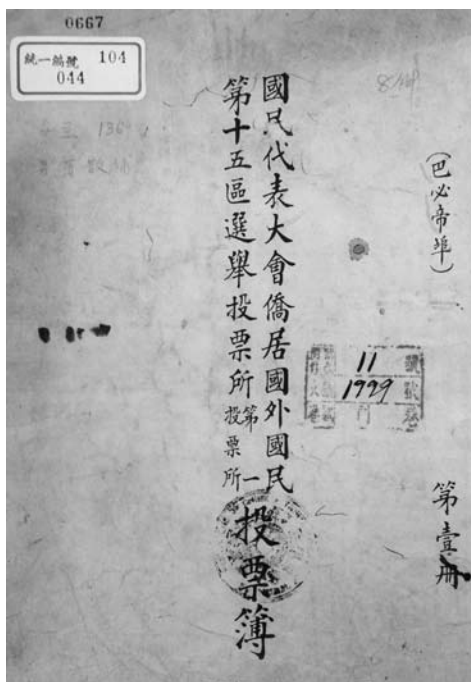 0667
統一編號 104
044
(巴必帝埠)
第壹冊
11
1999
國民代表大會僑居國外國民
第十五區選舉投票所第一投票所
投票簿